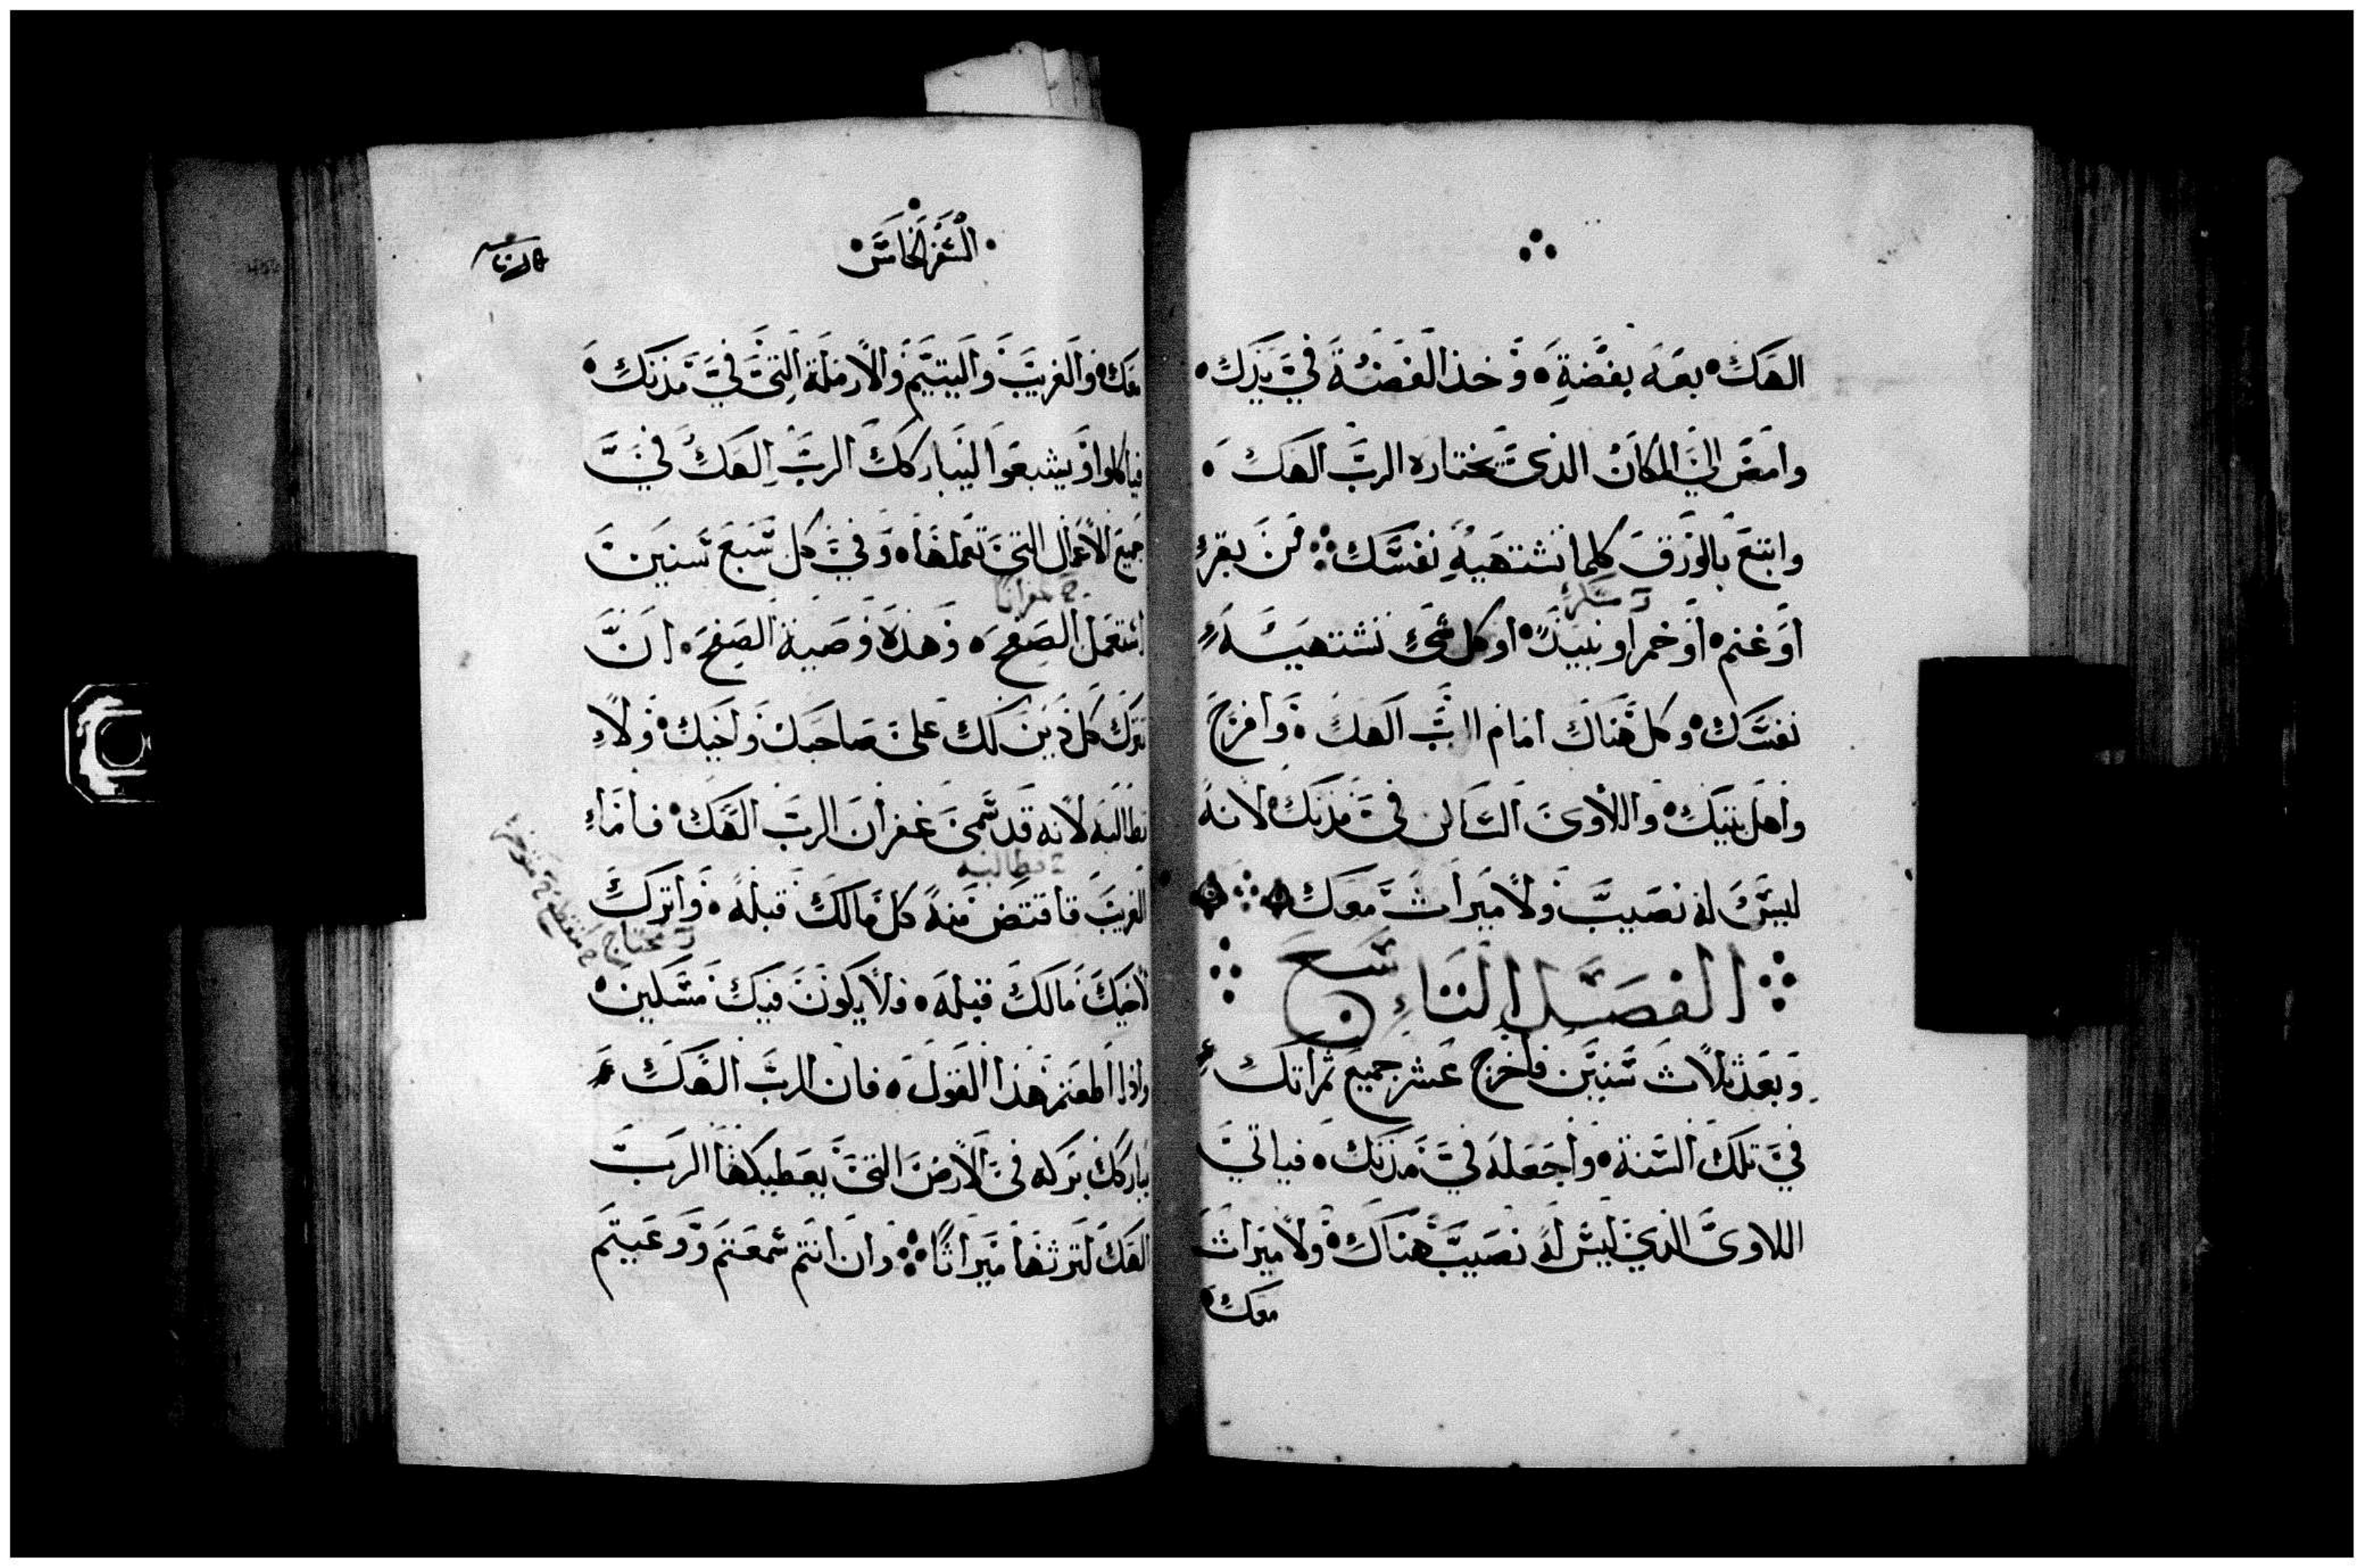 الهك بعه بفضة وخذ الفضة في يدك
وامض الي المكان الذي يختاره الرب الهك
وابتع بالورق كلما تشتهيه نفسك من بقر
او غنم او خمر او نبيذ او كل شي تشتهيه
نفسك وكل هناك امام الرب الهك وافرح
واهل بيتك واللاوي الساكن في مدنك لانه
ليس له نصيب ولا ميراث معك
الفصل التاسع
وبعد ثلاث سنين فاخرج عشر جميع ثمراتك
في تلك السنة واجعله في مدنك فياتي
اللاوي الذي ليس له نصيب هناك ولا ميراث
معك
السفر الخامس
معك والغريب واليتيم والارملة التي في مدنك
فياكلوا ويشبعوا ليباركك الرب الهك في
جميع الاعمال التي تعملها وفي كل سبع سنين
غفرانا
استعمل الصفح وهذه وصية الصفح ان
تترك كل دين لك علي صاحبك واخيك ولا
تطالبه لانه قد سمي غفران الرب الهك فاما
تطالبه
الغريب فاقتض منه كل مالك قبله واترك
محتاج
لاخيك مالك قبله فلا يكونن فيك مسكين
واذا اطعتم هذا القول فان الرب الهك
يباركك بركه في الارض التي يعطيكها الرب
الهك لترثها ميراثا وان انتم سمعتم ووعيتم